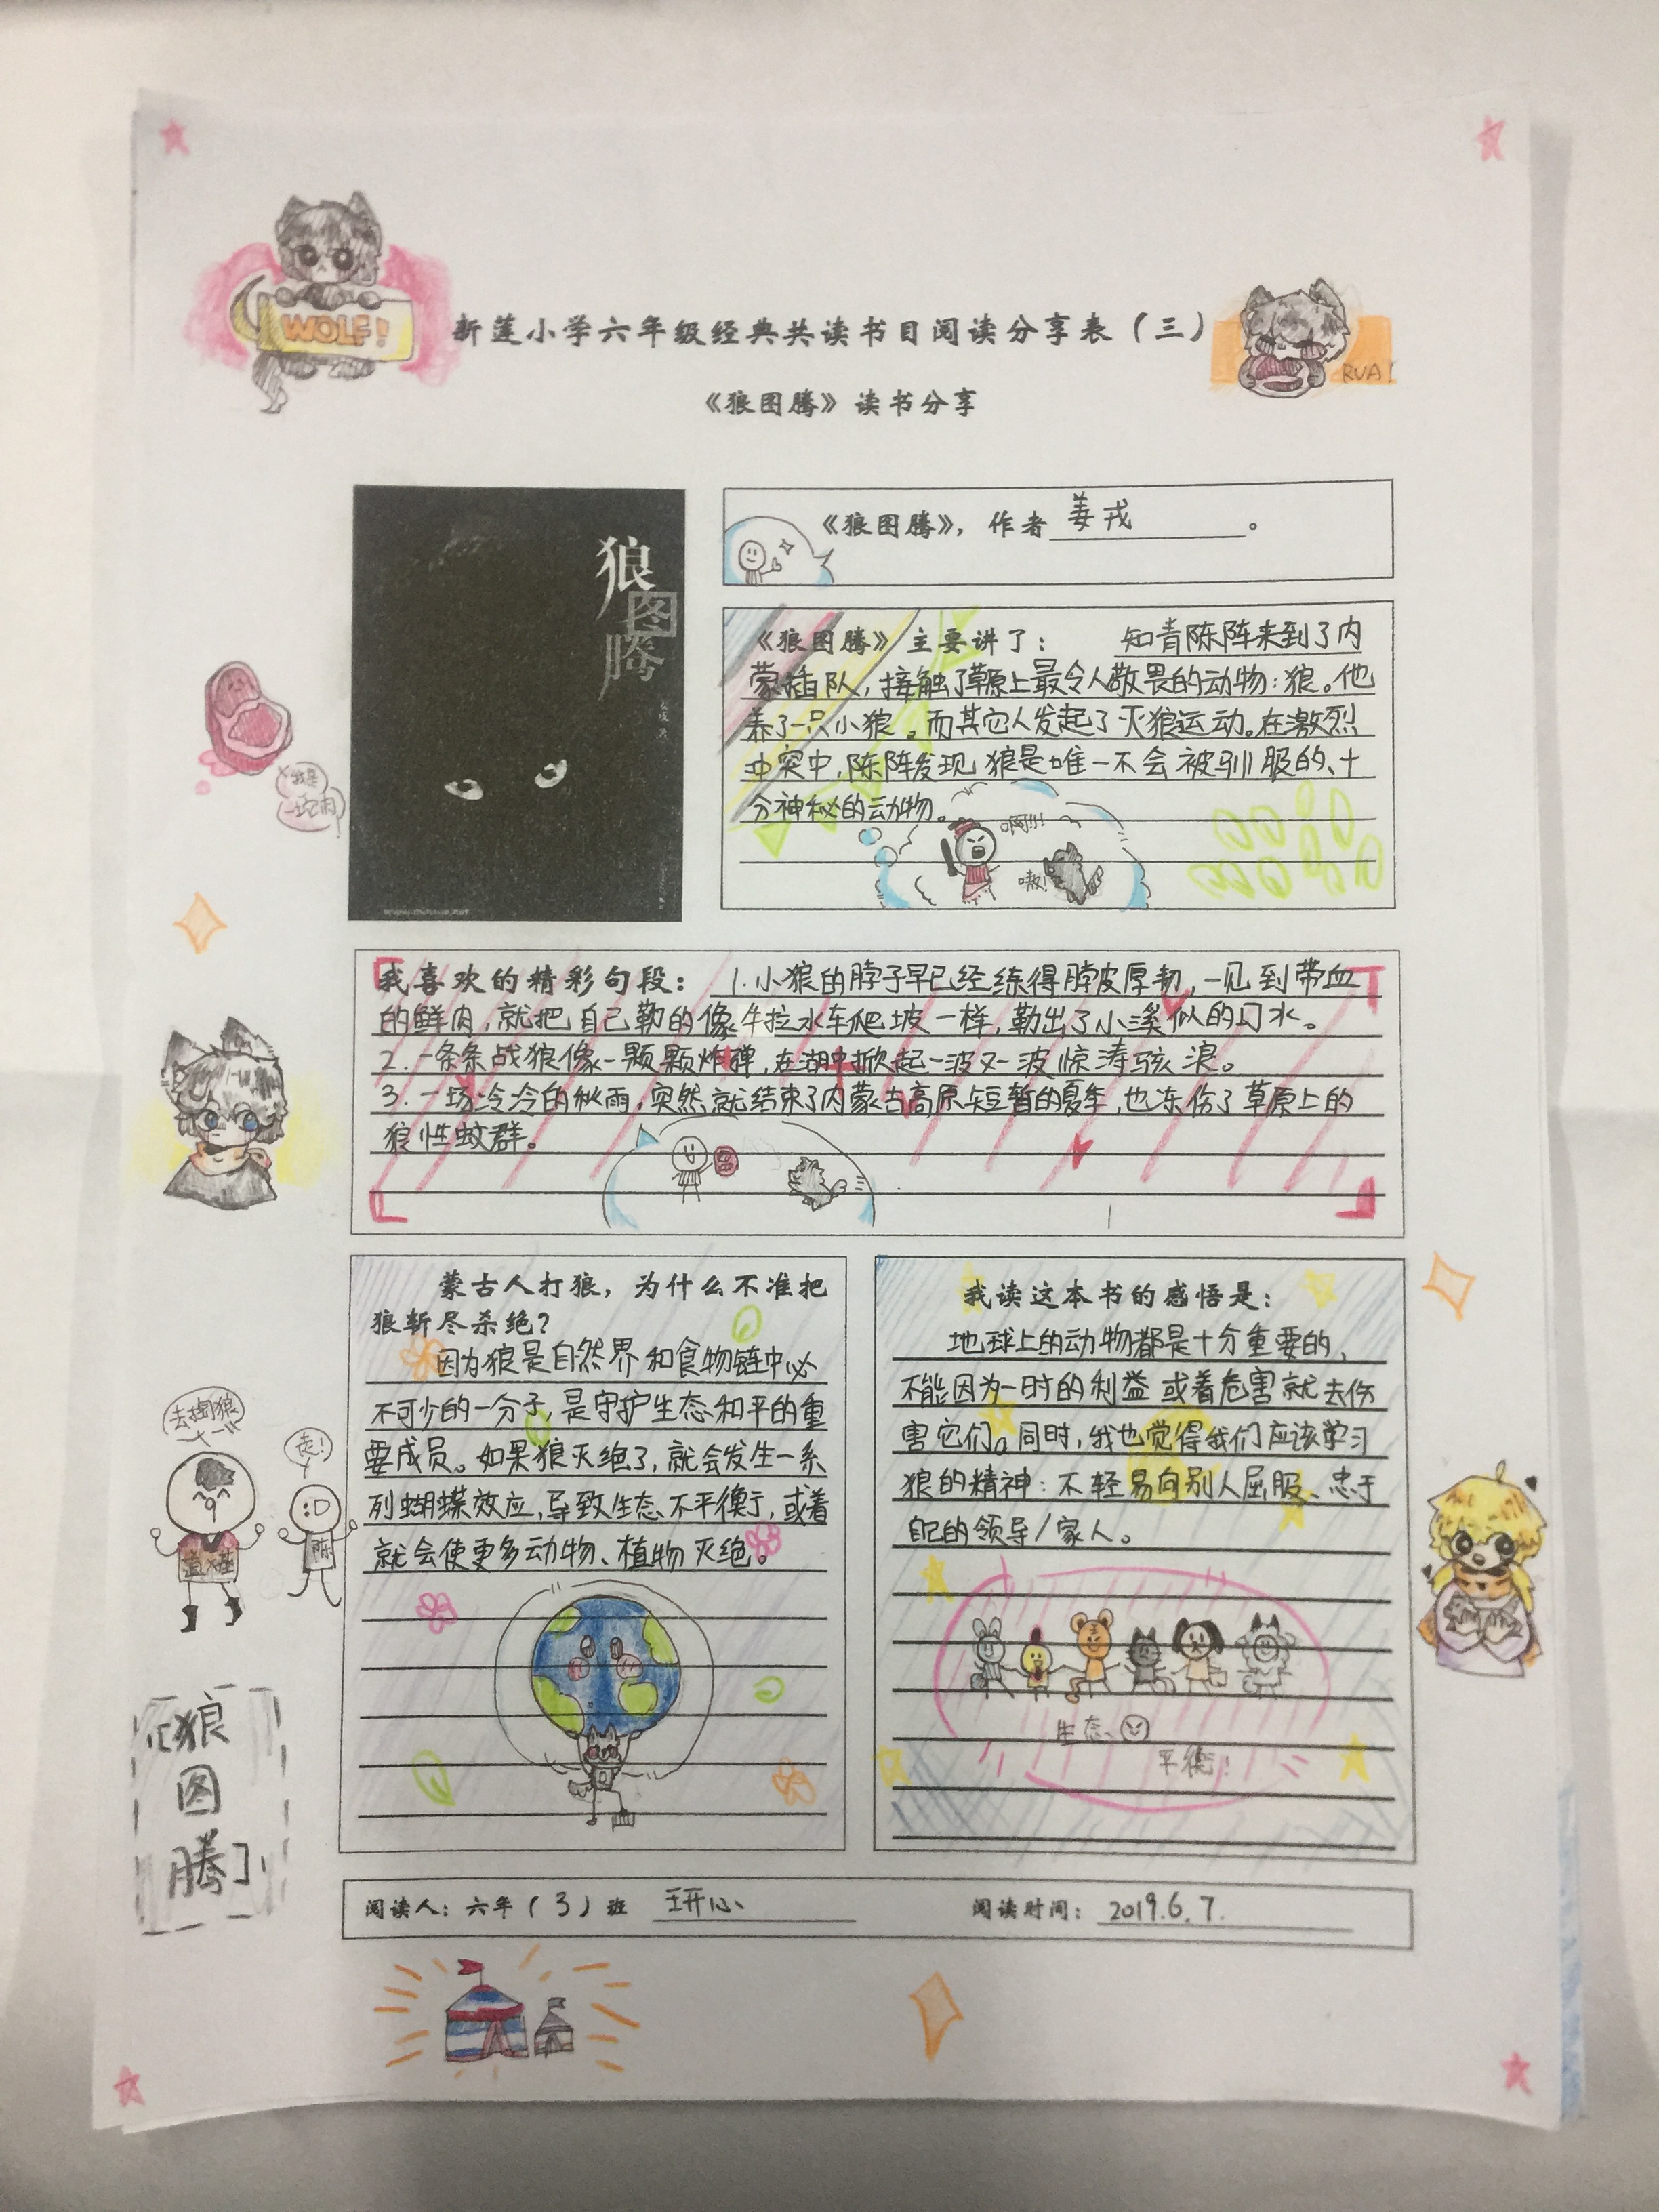 WOLF!
新莲小学六年级经典共读书目阅读分享表（三）
RUA!
《狼图腾》读书分享
狼
图
腾
姜戎 著
《狼图腾》，作者 姜戎 。
《狼图腾》主要讲了： 知青陈阵来到了内
蒙插队,接触了草原上最令人敬畏的动物:狼。他
养了一只小狼。而其它人发起了灭狼运动。在激烈
冲突中,陈阵发现狼是唯一不会被驯服的、十
分神秘的动物。
啊!!!
嗷!
我是
一坨肉
我喜欢的精彩句段： 1.小狼的脖子早已经练得脖皮厚韧,一见到带血
的鲜肉,就把自己勒的像牛拉水车爬坡一样,勒出了小溪似的口水。
2.一条条战狼像一颗颗炸弹,在湖中掀起一波又一波惊涛骇浪。
3.一场冷冷的秋雨,突然就结束了内蒙古高原短暂的夏季,也冻伤了草原上的
狼性蚊群。
蒙古人打狼，为什么不准把
狼斩尽杀绝？
因为狼是自然界和食物链中必
不可少的一分子,是守护生态和平的重
要成员。如果狼灭绝了,就会发生一系
列蝴蝶效应,导致生态不平衡,或着
就会使更多动物、植物灭绝。
我读这本书的感悟是：
地球上的动物都是十分重要的,
不能因为一时的利益或着危害就去伤
害它们。同时,我也觉得我们应该学习
狼的精神:不轻易向别人屈服、忠于
自己的领导/家人。
生态
平衡!
去掏狼
走!
:D
陈
『狼
图
腾』
阅读人：六年（3）班 研心
阅读时间： 2019.6.7.